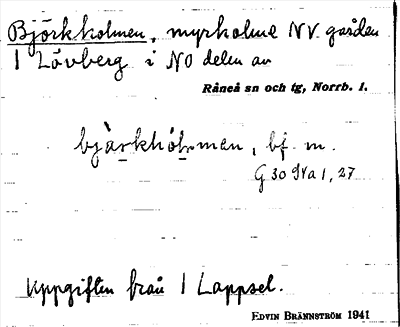 Björkholmen, myrholme NV. gården
1 Lövberg i NO delen av
Råneå sn och tg, Norrb. l.
bjärkhólmen, bf. m.
G 30 9/a 1, 27
Uppgiften från 1 Lappsel.
EDVIN BRÄNNSTRÖM 1941